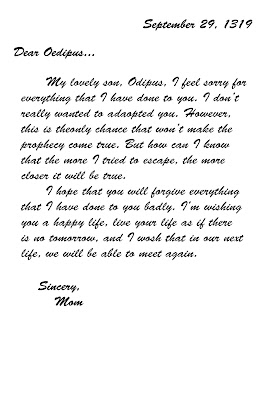 September 29, 1319
Dear Oedipus...
My lovely son, Odipus, I feel sorry for
everything that I have done to you. I don't
really wanted to adaopted you. However,
this is theonly chance that won't make the
prophecy come true. But how can I know
that the more I tried to escape, the more
closer it will be true.
I hope that you will forgive everything
that I have done to you badly. I'm wishing
you a happy life, live your life as if there
is no tomorrow, and I wosh that in our next
life, we will be able to meet again.
Sincery,
Mom